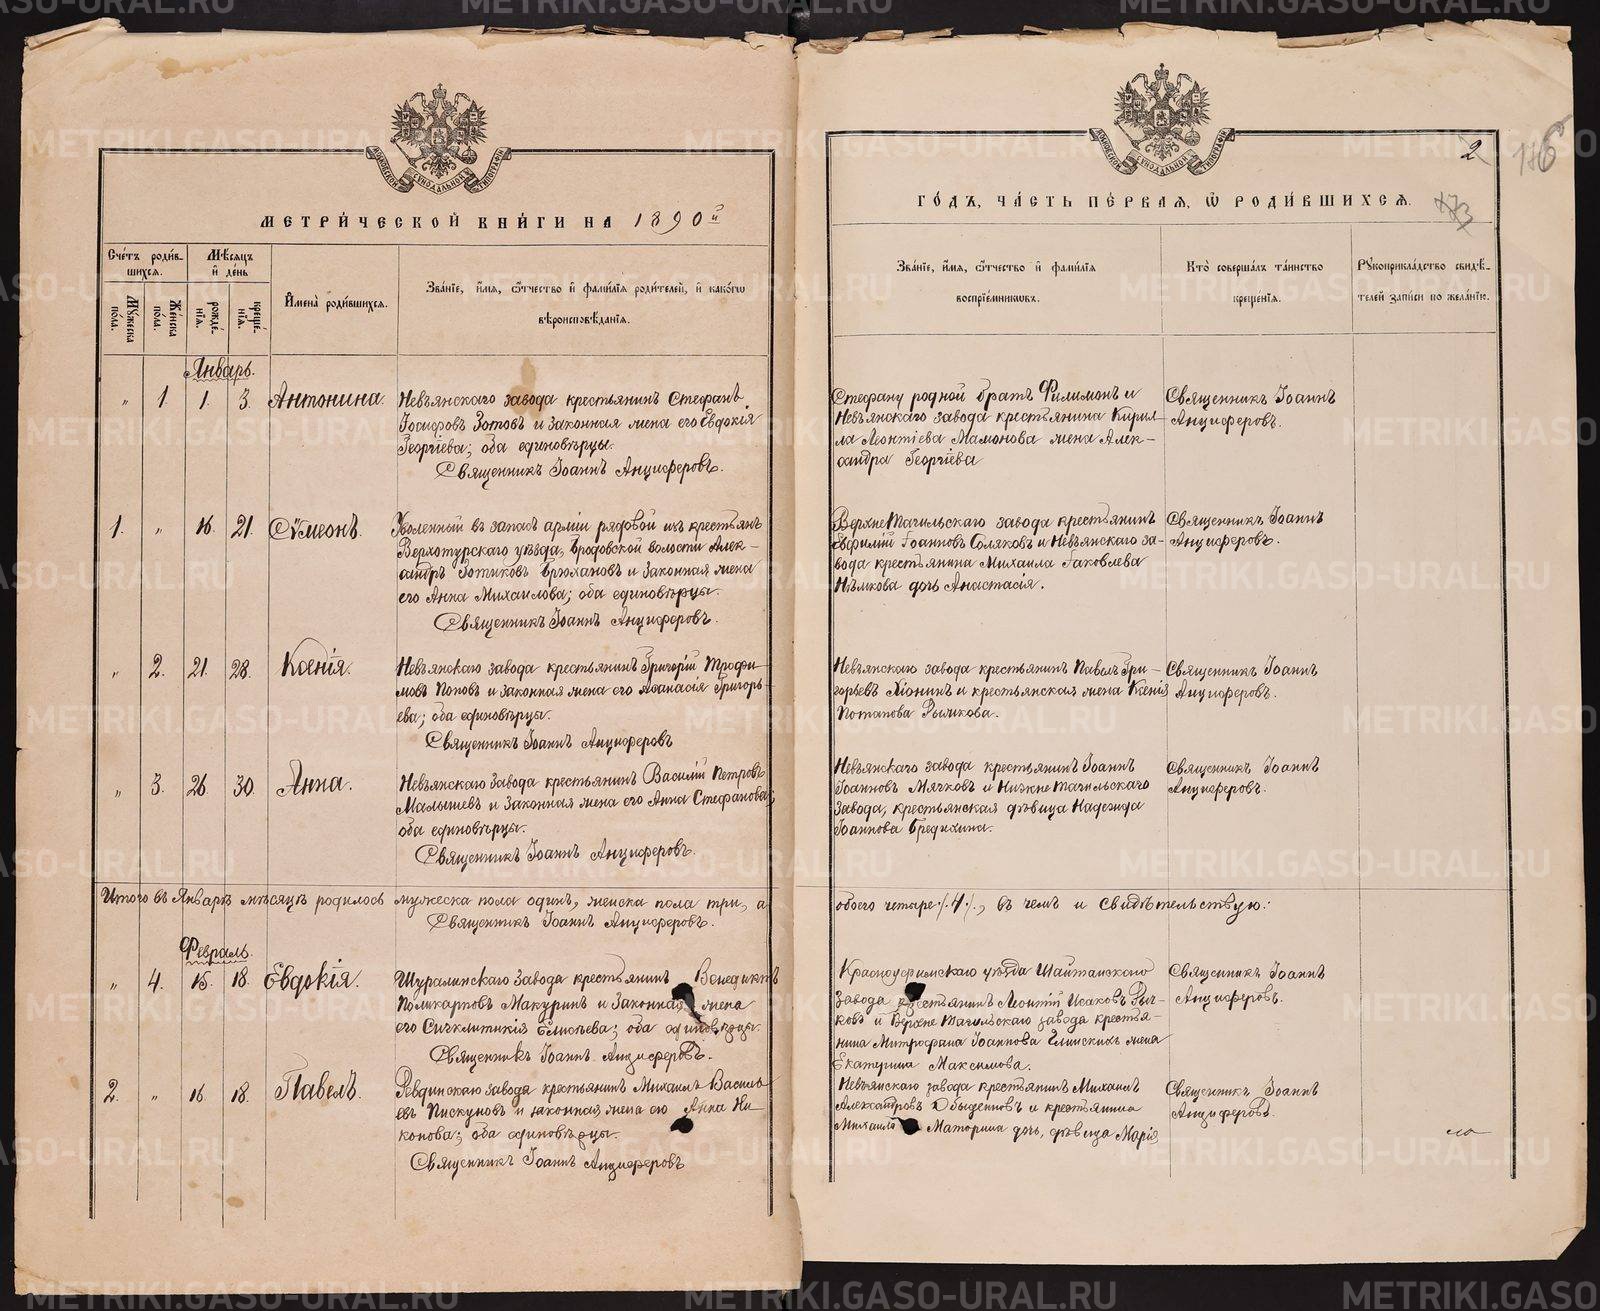 МОСКОВСКОЙ СѴНОДАЛЬНОЙ ТИПОГРАФІИ
МЕТРИ́ЧЕСКОЙ КНИ́ГИ НА 1890й
Сче́тъ роди́в-
шихся.
Мѣ́сяцъ
и҆ де́нь
Мꙋ́жеска
пола.
Же́нска
пола.
рожде́-
нїѧ.
креще́-
нїѧ.
И҆мена̀ роди́вшихся.
Зва́нїе, и҆́мѧ, ѻ҆́тчество и҆ фами́лїѧ роди́телей, и҆ како́гѡ
вѣроисповѣ́данїѧ.
Январь.
" 1. 1. 3. Антонина.
Невьянскаго завода крестьянинъ Стефанъ
Іосифовъ Зотовъ и законная жена его Евдокія
Георгіева; оба единовѣрцы.
Священникъ Іоаннъ Анциферовъ.
1. " 16. 21. Сѷмеонъ.
Уволенный въ запасъ арміи рядовой изъ крестьянъ
Верхотурскаго уѣзда, Бродовской волости Алек-
сандръ Зотиковъ Брюхановъ и законная жена
его Анна Михаилова; оба единовѣрцы.
Священникъ Іоаннъ Анциферовъ.
" 2. 21. 28. Ксенія.
Невьянскаго завода крестьянинъ Григорій Трофи-
мовъ Поповъ и законная жена его Афанасія Григорь-
ева; оба единовѣрцы.
Священникъ Іоаннъ Анциферовъ
" 3. 26. 30. Анна.
Невьянскаго завода крестьянинъ Василій Петровъ
Малышевъ и законная жена его Анна Стефанова;
оба единовѣрцы.
Священникъ Іоаннъ Анциферовъ.
Итого въ Январѣ мѣсяцѣ родилось мужеска пола одинъ, женска пола три, а
Священникъ Іоаннъ Анциферовъ.
Февраль.
" 4. 15. 18. Евдокія.
Шуралинскаго завода крестьянинъ Венедиктъ
Поликарповъ Макуринъ и законная жена
его Сигклитикія Елисѣева; оба единовѣрцы.
Священникъ Іоаннъ Анциферовъ.
2. " 16. 18. Павелъ.
Ревдинскаго завода крестьянинъ Михаилъ Василь
евъ Пискуновъ и законная жена его Анна Ни-
конова; оба единовѣрцы.
Священникъ Іоаннъ Анциферовъ
МОСКОВСКОЙ СѴНОДАЛЬНОЙ ТИПОГРАФІИ
2
176
173
ГО́ДЪ, ЧА́СТЬ ПЕ́РВАѦ, Ѡ҆ РОДИ́ВШИХСѦ.
Зва́нїе, и҆́мѧ, ѻ҆́тчество и҆ фами́лїѧ
воспрїе́мникѡвъ.
Кто̀ соверша́лъ та́инство
креще́нїѧ.
Рꙋкоприкла́дство свидѣ́-
телей за́писи по жела́нїю.
Стефану родной братъ Филимонъ и
Невьянскаго завода крестьянина Кирил-
ла Леонтіева Мамонова жена Алек-
сандра Георгіева
Священникъ Іоаннъ
Анциферовъ.
Верхне Тагильскаго завода крестьянинъ
Евфимій Іоанновъ Соляковъ и Невьянскаго за-
вода крестьянина Михаила Іаковлева
Нѣмкова дчь Анастасія.
Священникъ Іоаннъ
Анциферовъ.
Невьянскаго завода крестьянинъ Павелъ Гри-
горьевъ Хіонинъ и крестьянская жена Ксенія
Потапова Рыжкова.
Священникъ Іоаннъ
Анциферовъ.
Невьянскаго завода крестьянинъ Іоаннъ
Іоанновъ Мячковъ и Нижне Тагильскаго
завода, крестьянская дѣвица Надежда
Іоаннова Бредихина.
Священникъ Іоаннъ
Анциферовъ.
обоего четыре /.4/., въ чемъ и свидѣтельствую:
Красноуфимскаго уѣзда Шайтанскаго
завода крестьянинъ Леонтій Исаковъ Рыч-
ковъ и Верхне Тагильскаго завода крестья-
нина Митрофана Іоаннова жена
Екатерина Максимова.
Священникъ Іоаннъ
Анциферовъ.
Невьянскаго завода крестьянинъ Михаилъ
Александровъ Обыденновъ и крестьянина
Михаила Маторина дчь, дѣвица Марія
Священникъ Іоаннъ
Анциферовъ.
METRIKI.GASO-URAL.RU